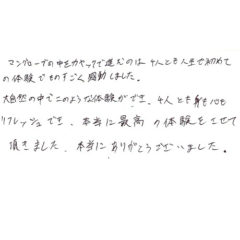 マングローブの中をカヤックで進むのは4人とも人生で初めて
の体験でものすごく感動しました。
大自然の中でこのような体験ができ、4人とも身も心も
リフレッシュでき、本当に最高の体験をさせて
頂きました。本当にありがとうございました。